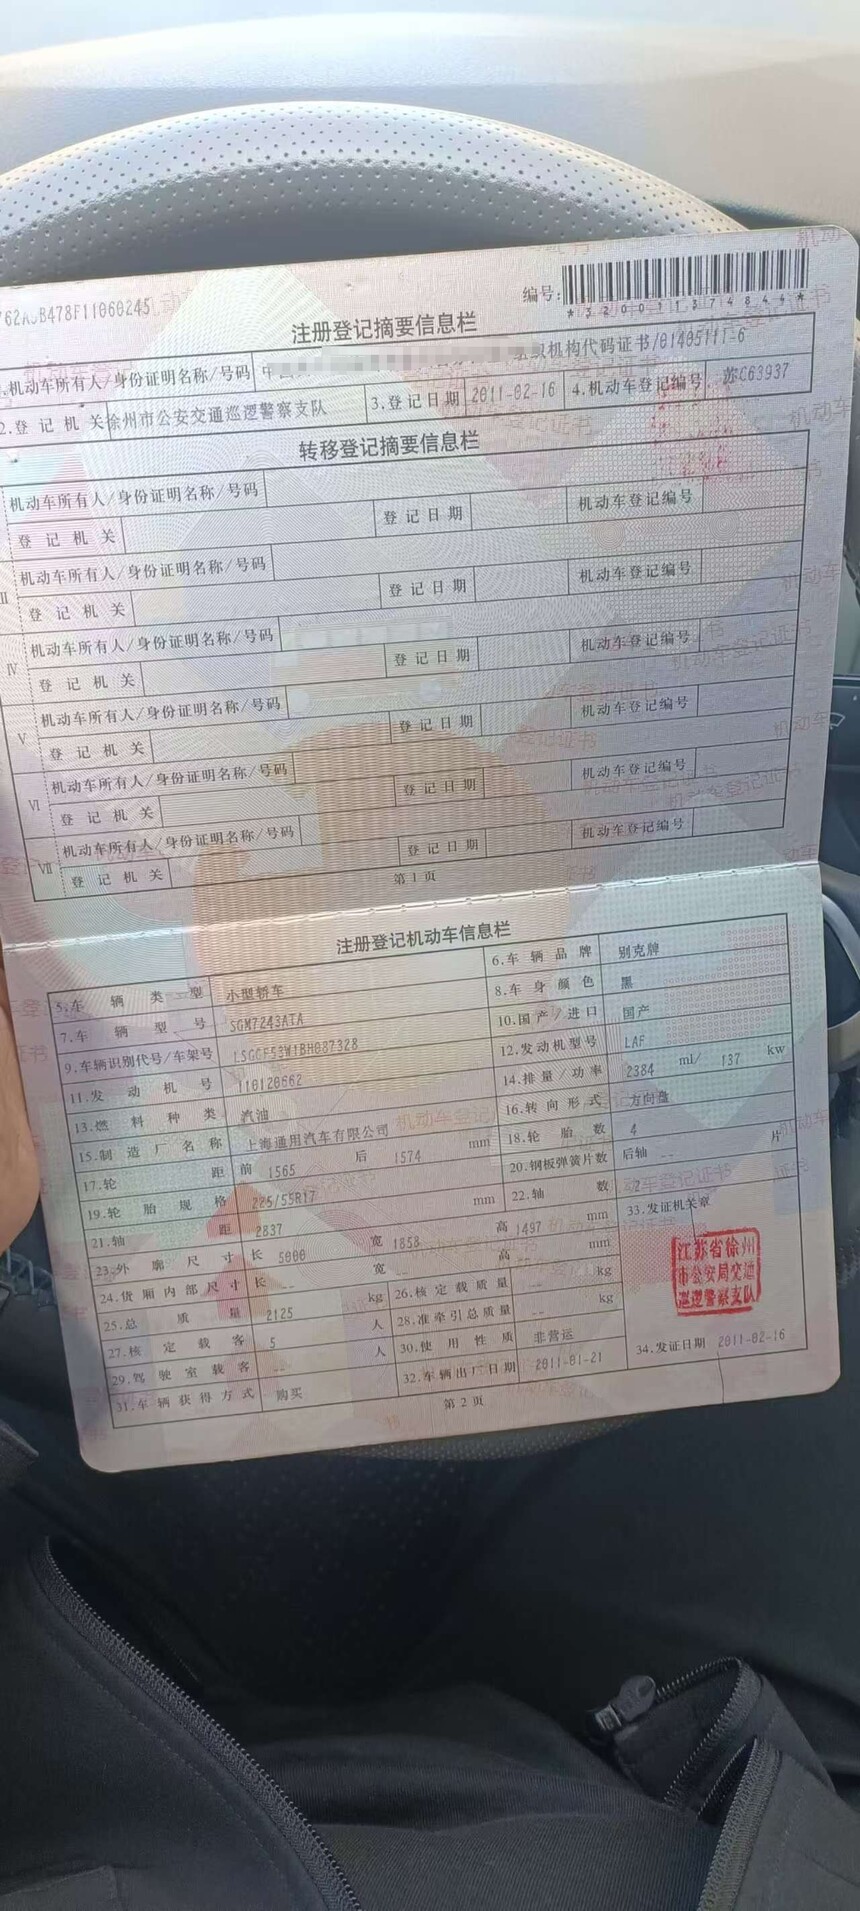 编号:
*320011374844*
注册登记摘要信息栏
1.机动车所有人/身份证明名称/号码 组织机构代码证书/01405111-6
2.登记机关 徐州市公安交通巡逻警察支队 3.登记日期 2011-02-16 4.机动车登记编号 苏C63937
转移登记摘要信息栏
机动车所有人/身份证明名称/号码
登记机关 登记日期 机动车登记编号
III 机动车所有人/身份证明名称/号码
登记机关 登记日期 机动车登记编号
IV 机动车所有人/身份证明名称/号码
登记机关 登记日期 机动车登记编号
V 机动车所有人/身份证明名称/号码
登记机关 登记日期 机动车登记编号
VI 机动车所有人/身份证明名称/号码
登记机关 登记日期 机动车登记编号
VII 机动车所有人/身份证明名称/号码
登记机关 登记日期 机动车登记编号
第1页
注册登记机动车信息栏
5.车辆类型 小型轿车 6.车辆品牌 别克牌
7.车辆型号 SGM7243ATA 8.车身颜色 黑
9.车辆识别代号/车架号 LSGGF53W1BH087328 10.国产/进口 国产
11.发动机号 110120662 12.发动机型号 LAF
13.燃料种类 汽油 14.排量/功率 2384 ml/ 137 kw
15.制造厂名称 上海通用汽车有限公司 16.转向形式 方向盘
17.轮距 前 1565 后 1574 mm 18.轮胎数 4
19.轮胎规格 225/55R17 20.钢板弹簧片数 后轴 -- 片
21.轴距 2837 mm 22.轴数 2
23.外廓尺寸 长 5000 宽 1858 高 1497 mm 33.发证机关章
24.货厢内部尺寸 长 -- 宽 -- 高 -- mm
25.总质量 2125 kg 26.核定载质量 -- kg
27.核定载客 5 人 28.准牵引总质量 -- kg
29.驾驶室载客 -- 人 30.使用性质 非营运
31.车辆获得方式 购买 32.车辆出厂日期 2011-01-21 34.发证日期 2011-02-16
江苏省徐州
市公安局交通
巡逻警察支队
第2页